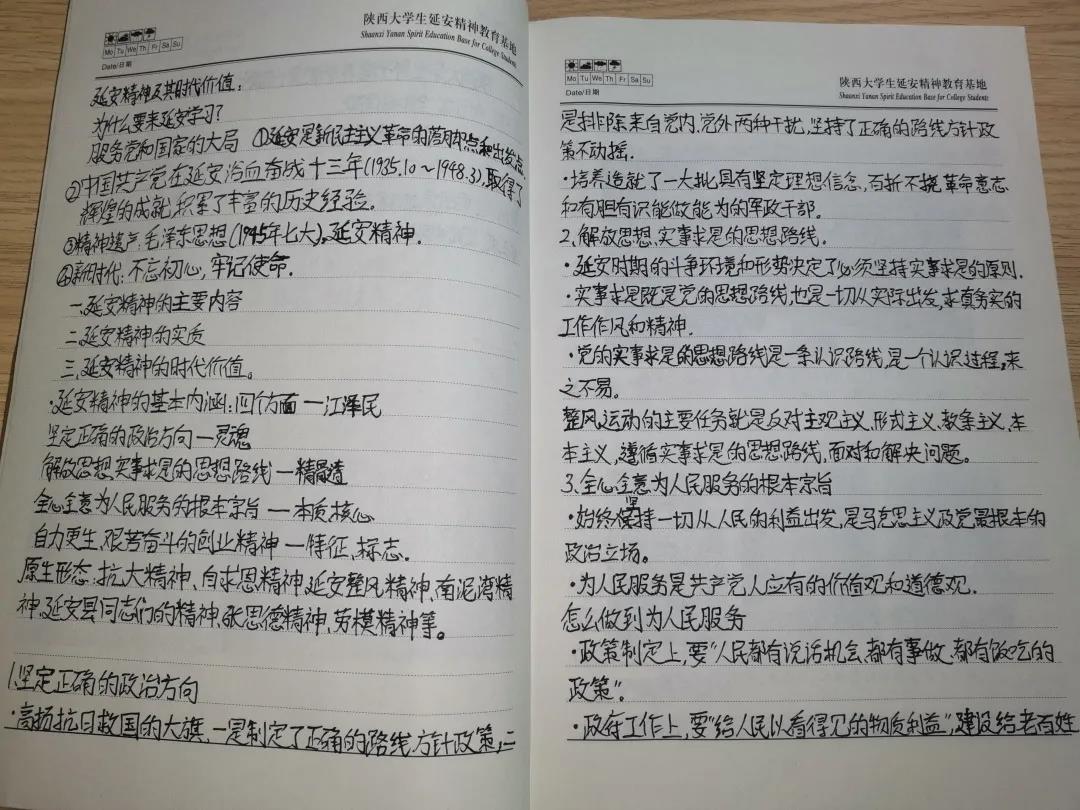 陕西大学生延安精神教育基地
Shaanxi Yanan Spirit Education Base for College Students
Mo Tu We Th Fr Sa Su
Date/日期
延安精神及其时代价值:
为什么要来延安学习?
服务党和国家的大局 ①延安是新民主主义革命的落脚点和出发点
②中国共产党在延安浴血奋战十三年(1935.10~1948.3),取得了
辉煌的成就,积累了丰富的历史经验.
③精神遗产:毛泽东思想(1945年七大)、延安精神.
④新时代:不忘初心,牢记使命.
一.延安精神的主要内容
二.延安精神的实质
三.延安精神的时代价值。
·延安精神的基本内涵:四个方面 — 江泽民
坚定正确的政治方向 — 灵魂
解放思想、实事求是的思想路线 — 精髓
全心全意为人民服务的根本宗旨 — 本质、核心
自力更生、艰苦奋斗的创业精神 — 特征、标志.
原生形态:抗大精神、白求恩精神、延安整风精神、南泥湾精
神、延安县同志们的精神、张思德精神、劳模精神等。
1.坚定正确的政治方向
·高扬抗日救国的大旗.一是制定了正确的路线方针政策,二
Mo Tu We Th Fr Sa Su
Date/日期
陕西大学生延安精神教育基地
Shaanxi Yanan Spirit Education Base for College Students
是排除来自党内.党外两种干扰,坚持了正确的路线方针政
策不动摇.
·培养造就了一大批具有坚定理想信念,百折不挠革命意志
和有胆有识能做能为的军政干部.
2.解放思想、实事求是的思想路线.
·延安时期的斗争环境和形势决定了必须坚持实事求是的原则.
·实事求是既是党的思想路线,也是一切从实际出发,求真务实的
工作作风和精神.
·党的实事求是的思想路线是一条认识路线,是一个认识过程,来
之不易。
整风运动的主要任务就是反对主观主义、形式主义、教条主义、本
本主义,遵循实事求是的思想路线.面对和解决问题。
3.全心全意为人民服务的根本宗旨
·始终坚持一切从人民的利益出发,是马克思主义政党最根本的
政治立场。
·为人民服务是共产党人应有的价值观和道德观.
怎么做到为人民服务
·政策制定上,要"人民都有说话机会、都有事做、都有饭吃的
政策"。
·政府工作上,要"给人民以看得见的物质利益",建设给老百姓